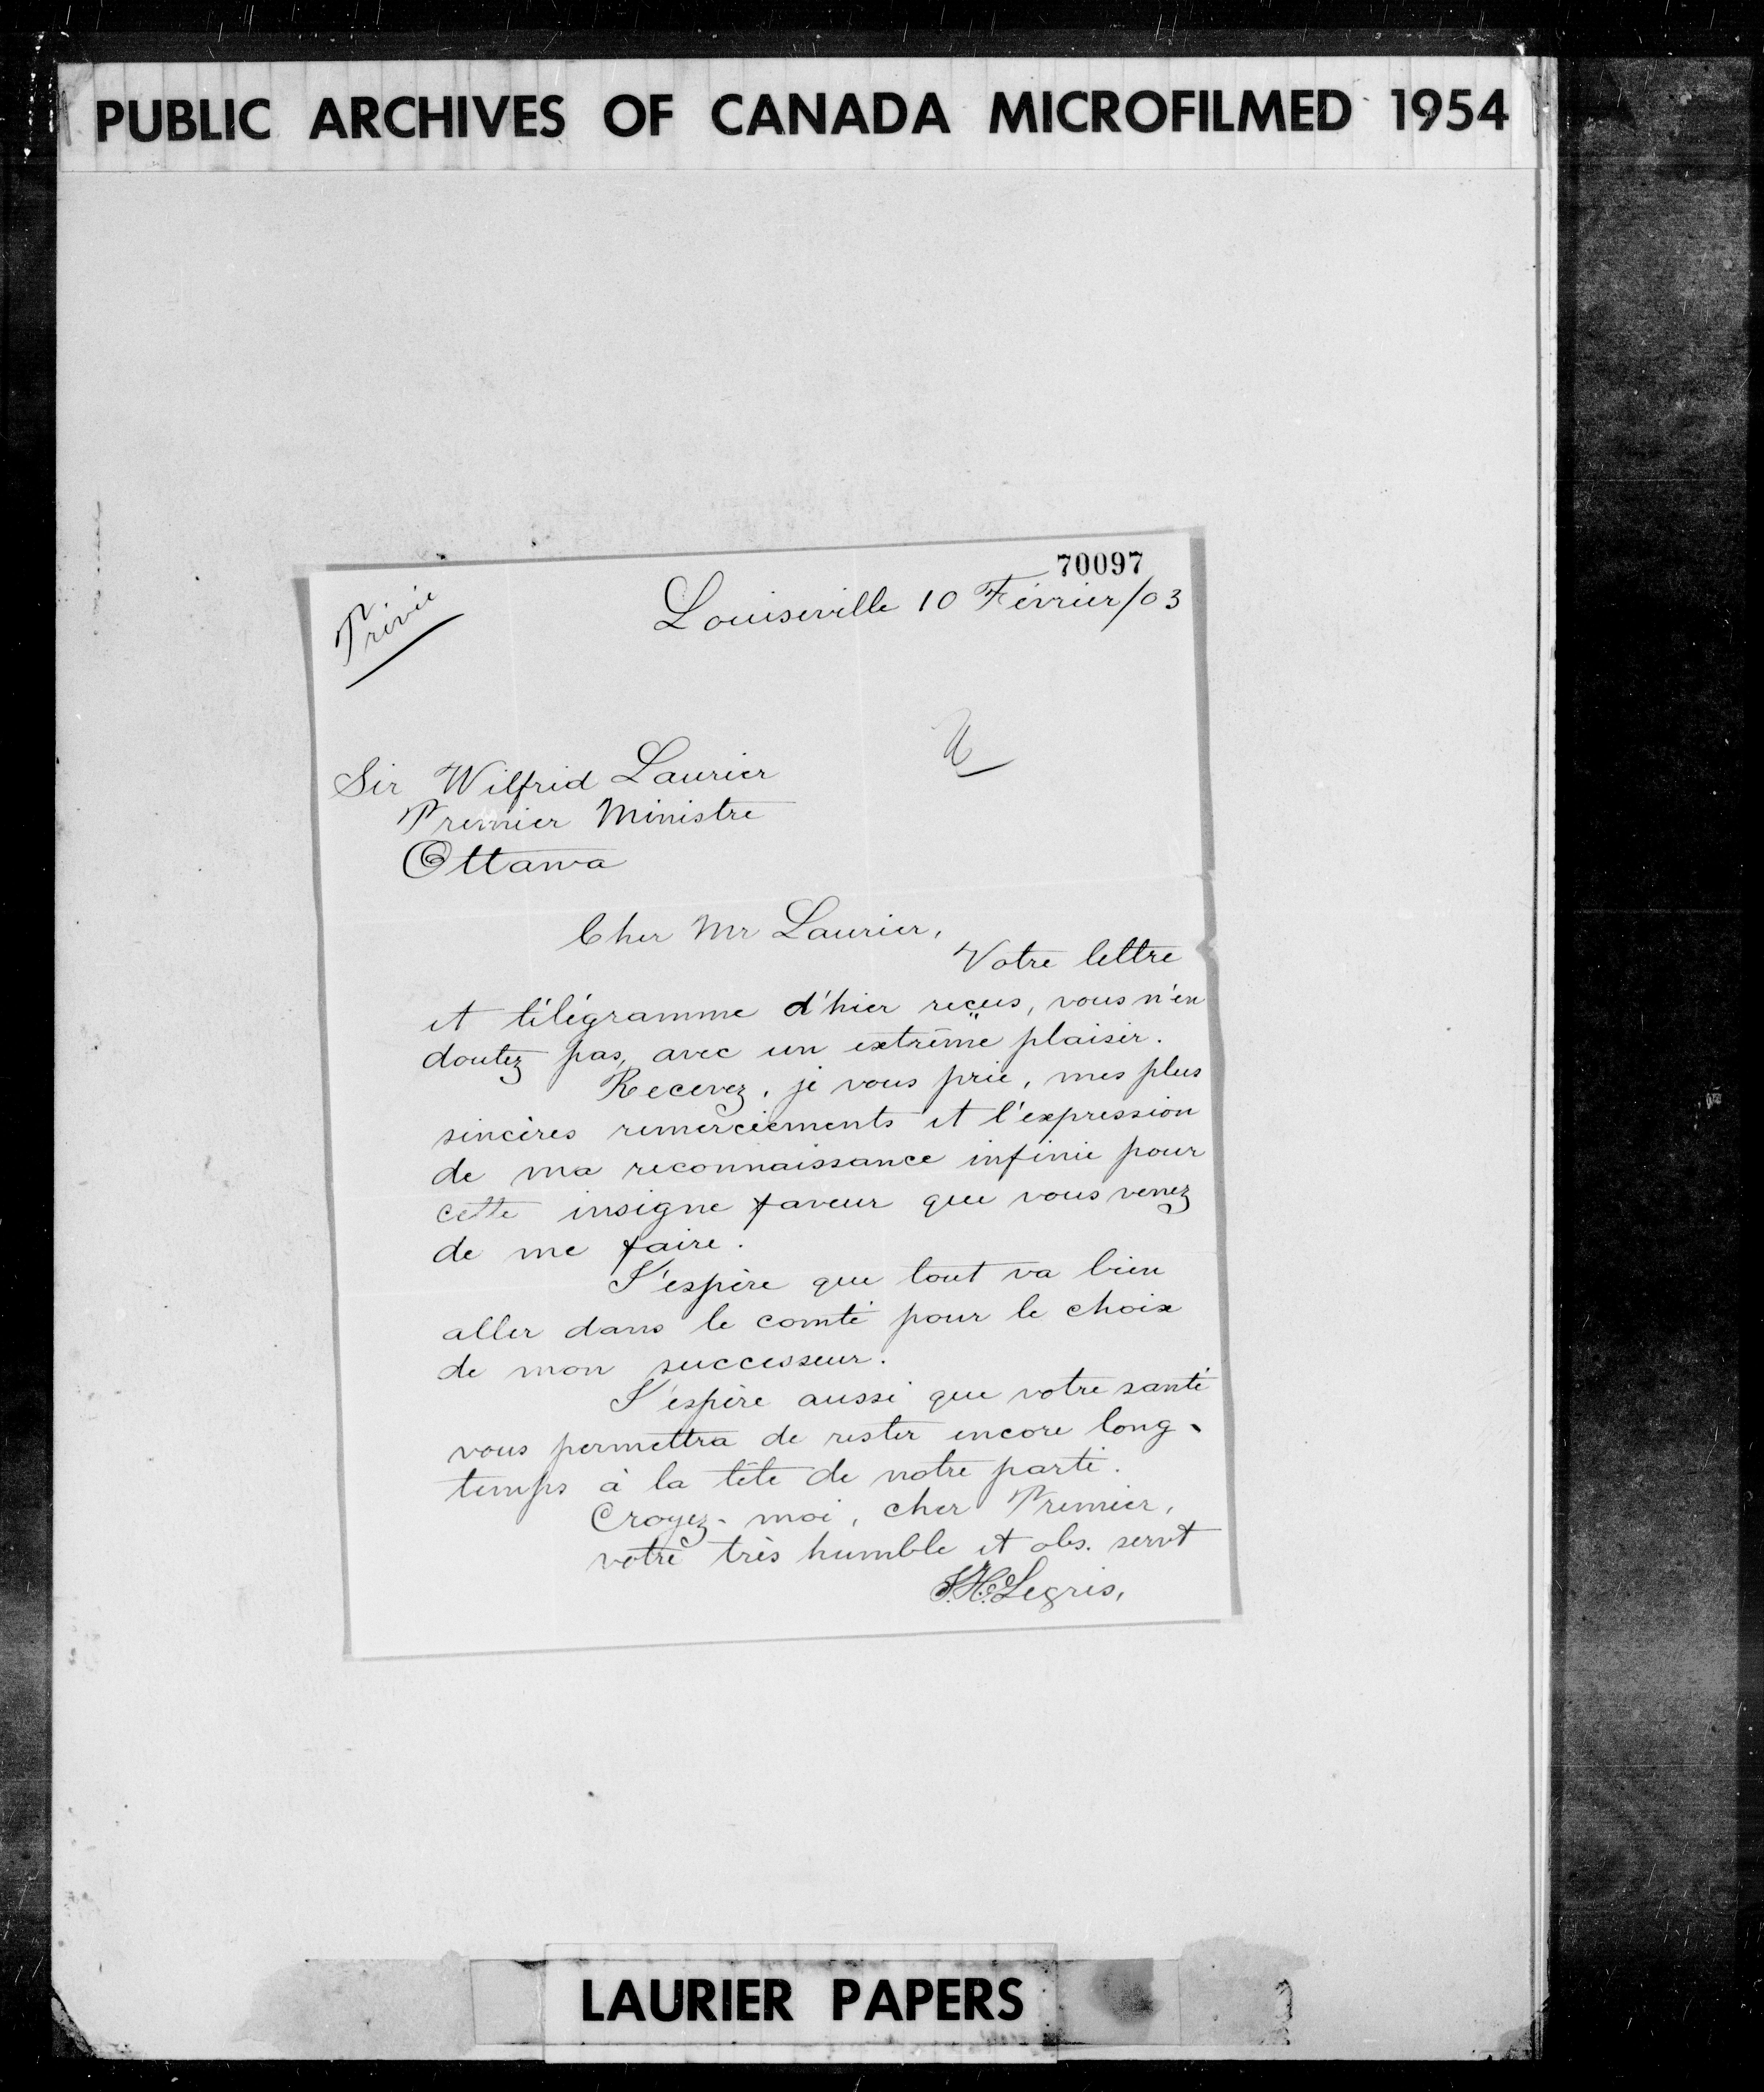 PUBLIC ARCHIVES OF CANADA MICROFILMED 1954
70097
Privée
Louiseville 10 Février/03
Sir Wilfrid Laurier
Premier Ministre
Ottawa
Cher Mr Laurier,
Votre lettre
et télégramme d'hier reçus, vous n'en
doutez pas, avec un extrême plaisir.
Recevez, je vous prie, mes plus
sincères remerciements et l'expression
de ma reconnaissance infinie pour
cette insigne faveur que vous venez
de me faire.
J'espère que tout va bien
aller dans le comté pour le choix
de mon successeur.
J'espère aussi que votre santé
vous permettra de rester encore long-
temps à la tête de notre parti.
Croyez-moi, cher Premier,
votre très humble et obs. servt
J.H. Legris,
LAURIER PAPERS